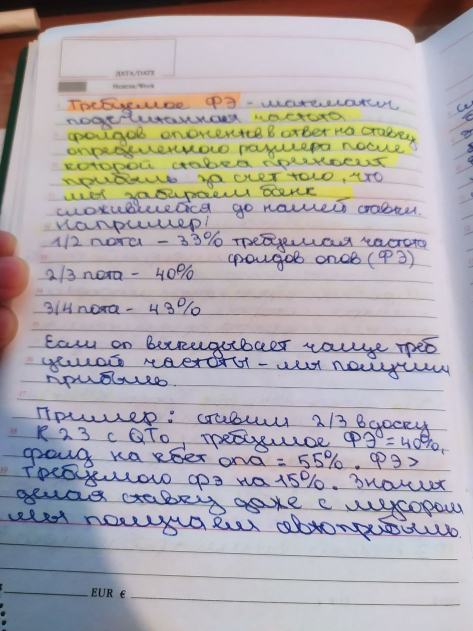 ДАТА/DATE
Неделя/Week
Требуемое ФЭ - математич.
подсчитанная частота
фолдов опонентов в ответ на ставку
определенного размера после
которой ставка приносит
прибыль за счет того, что
мы забираем банк
сложившейся до нашей ставки.
Например:
1/2 пота - 33% требуемая частота
фолдов опов (ФЭ)
2/3 пота - 40%
3/4 пота - 43%
Если оп выкидывает чаще треб
уемой частоты - мы получим
прибыль.
Пример: ставим 2/3 в доску
K 2 3 с QTo, требуемое ФЭ = 40%,
фолд на кбет опа = 55%. ФЭ >
требуемого фэ на 15%. Значит
делая ставку даже с мусором
мы получаем автоприбыль.
EUR €